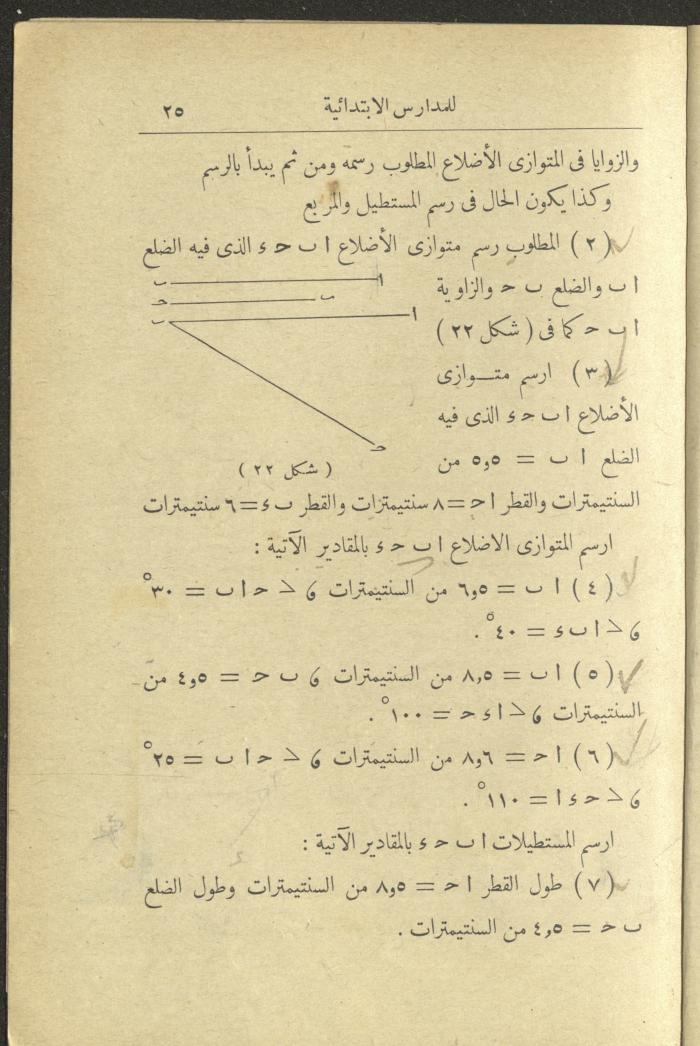 للمدارس الابتدائية ٢٥
والزوايا فى المتوازى الأضلاع المطلوب رسمه ومن ثم يبدأ بالرسم
وكذا يكون الحال فى رسم المستطيل والمربع
(٢) المطلوب رسم متوازى الأضلاع ا ب ح ء الذى فيه الضلع
ا ب والضلع ب ح والزاوية
ا ب ح كما فى (شكل ٢٢)
(٣) ارسم متـــوازى
الأضلاع ا ب ح ء الذى فيه
الضلع ا ب = ٥و٥ من
ا ب
ب ح
ا ب
ح
(شكل ٢٢)
السنتيمترات والقطر ا ح = ٨ سنتيمترات والقطر ب ء = ٦ سنتيمترات
ارسم المتوازى الاضلاع ا ب ح ء بالمقادير الآتية :
(٤) ا ب = ٥و٦ من السنتيمترات ى > ح ا ب = ٣٠°
ى > ا ب ء = ٤٠° .
(٥) ا ب = ٨,٥ من السنتيمترات ى ب ح = ٥و٤ من
السنتيمترات ى > ا ء ح = ١٠٠° .
(٦) ا ح = ٦و٨ من السنتيمترات ى > ح ا ب = ٢٥°
ى > ح ء ا = ١١٠° .
ارسم المستطيلات ا ب ح ء بالمقادير الآتية :
(٧) طول القطر ا ح = ٥و٨ من السنتيمترات وطول الضلع
ب ح = ٥و٤ من السنتيمترات .